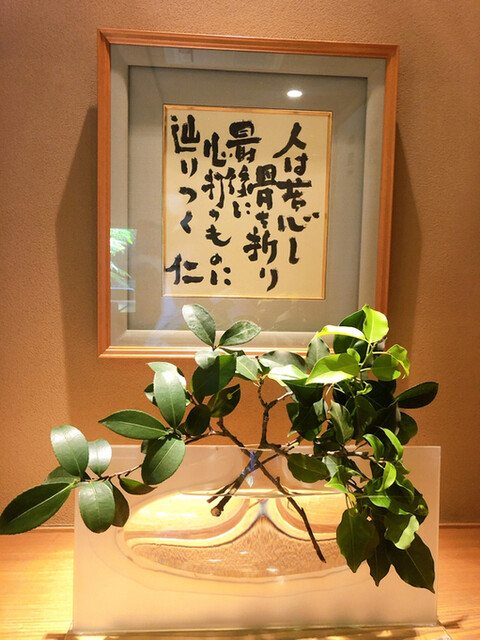 人は苦心し
骨を折り
最後に
心打つものに
辿りつく 仁